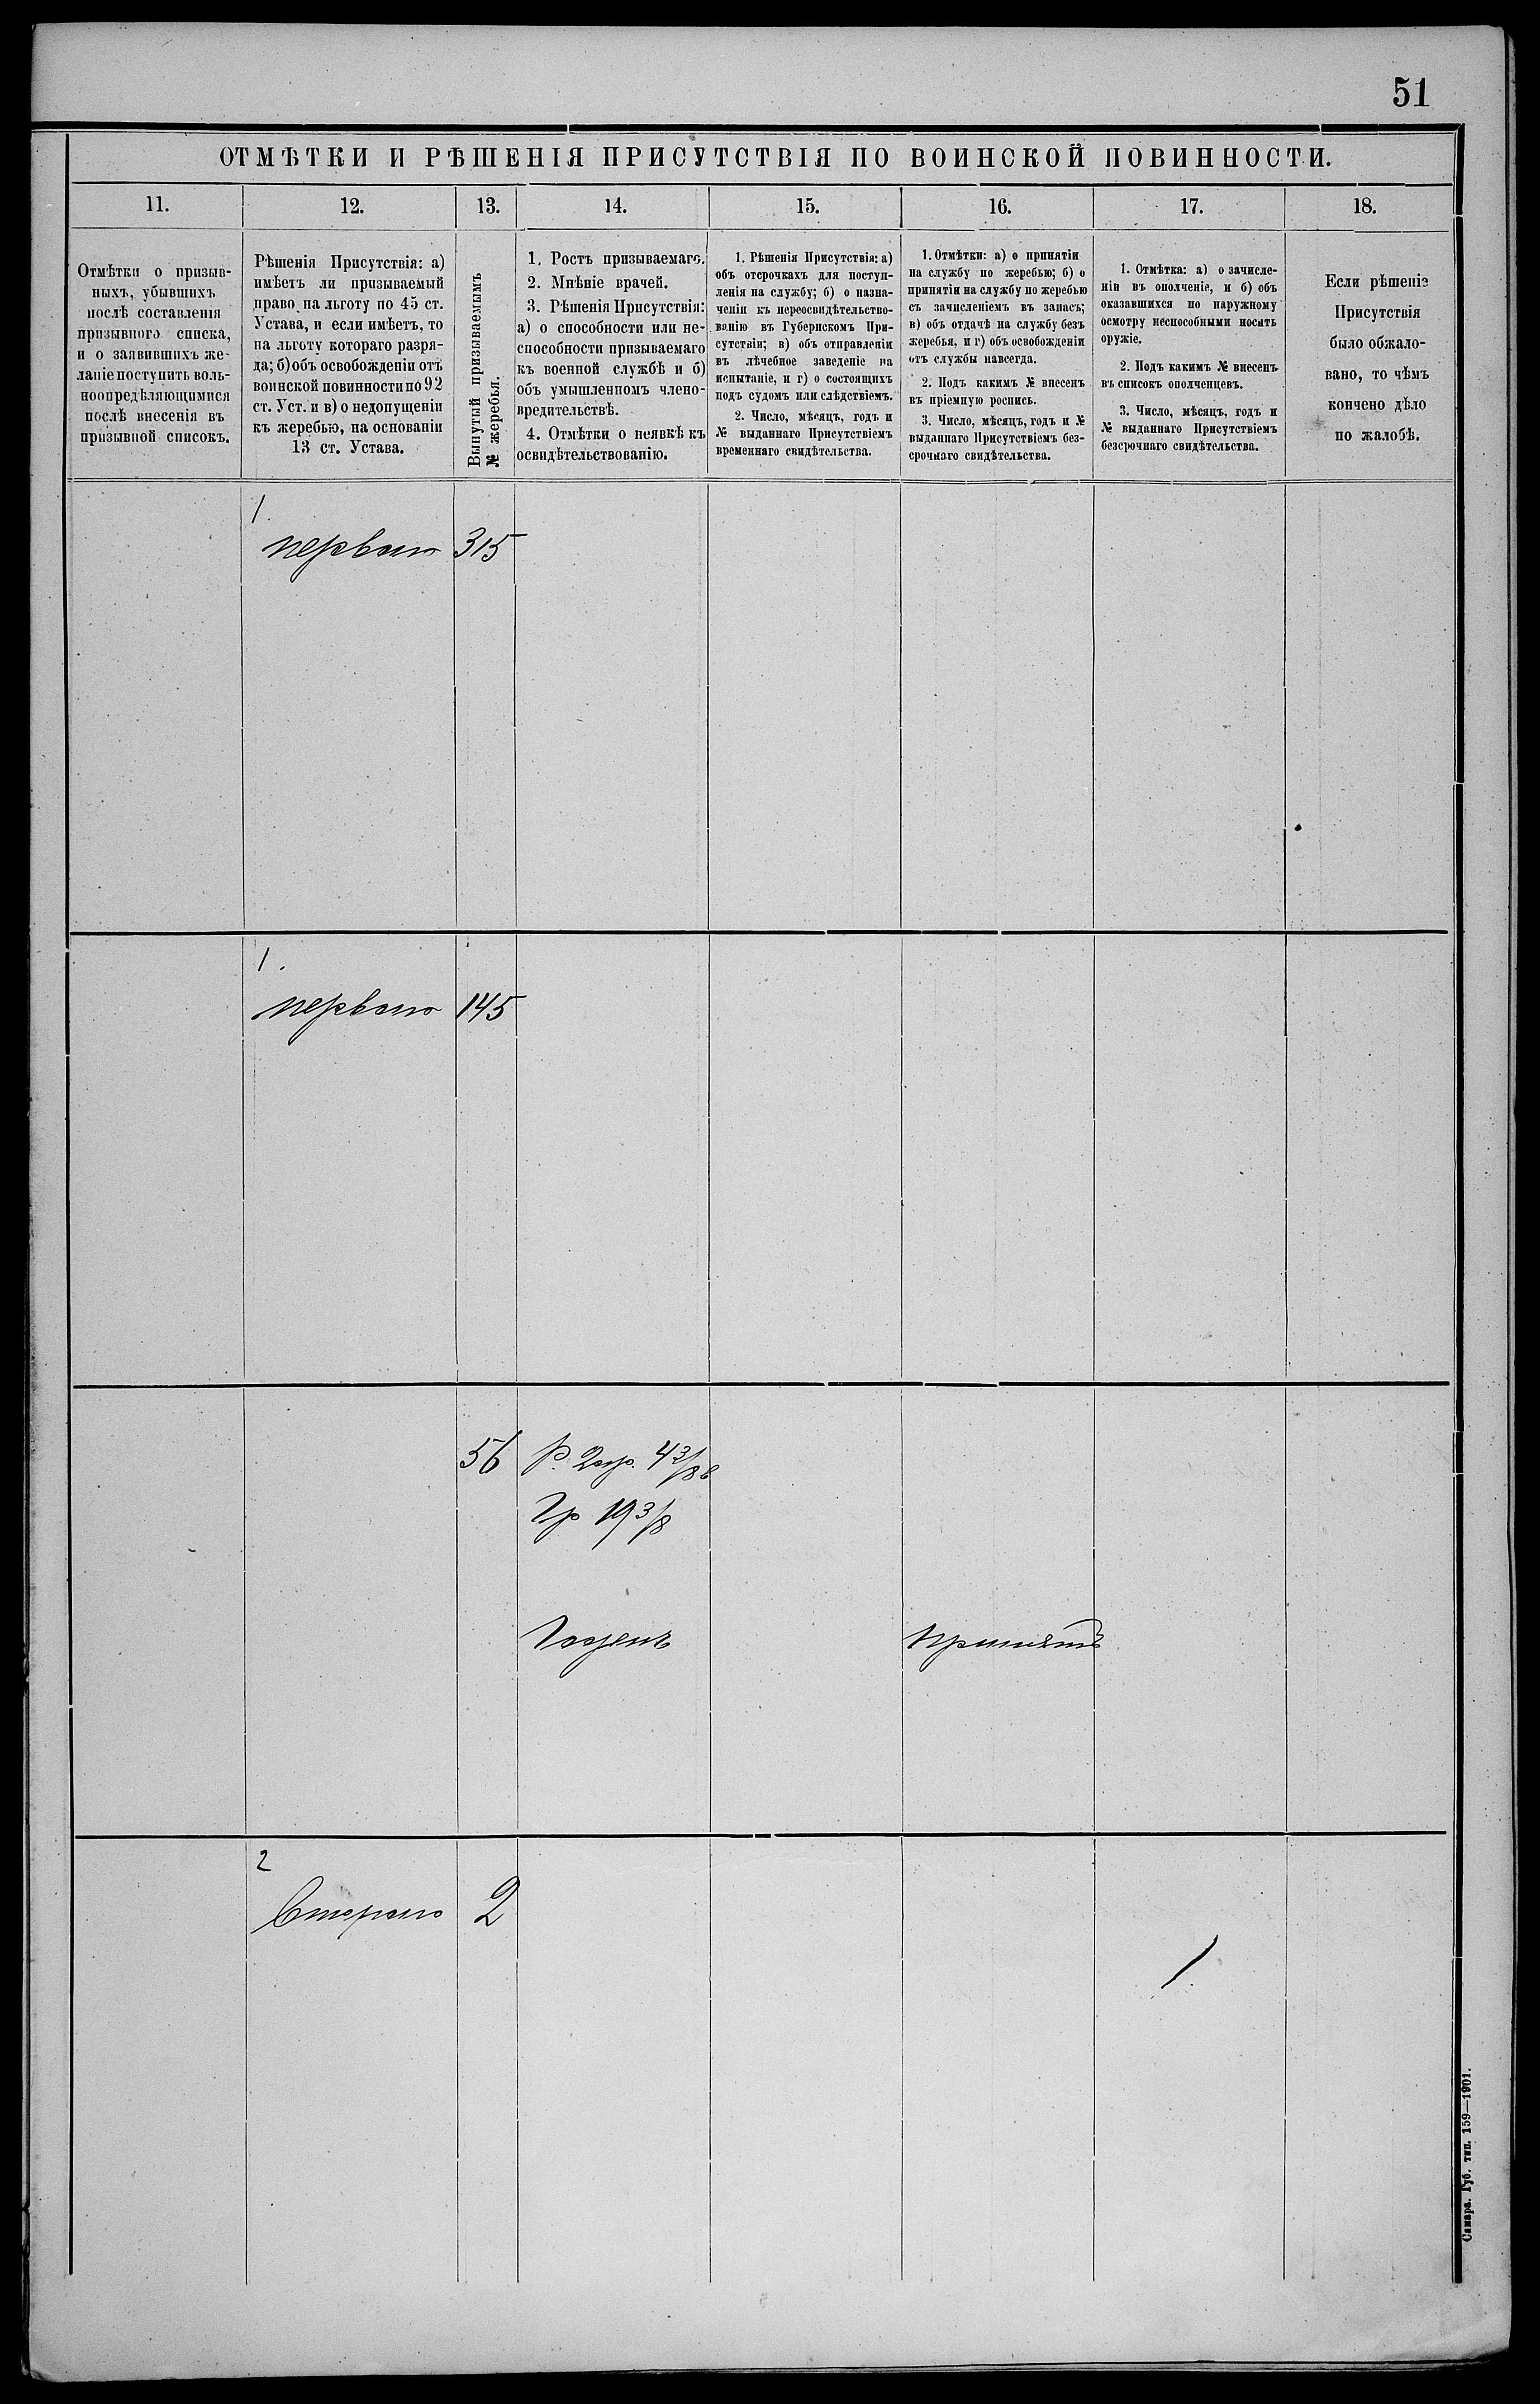 51
ОТМѢТКИ И РѢШЕНІЯ ПРИСУТСТВІЯ ПО ВОИНСКОЙ ПОВИННОСТИ.
11.
12.
13.
14.
15.
16.
17.
18.
Отмѣтки о призыв-
ныхъ, убывшихъ
послѣ составленія
призывного списка,
и о заявившихъ же-
ланіе поступить воль-
ноопредѣляющимися
послѣ внесенія въ
призывной списокъ.
Рѣшенія Присутствія: а)
имѣетъ ли призываемый
право на льготу по 45 ст.
Устава, и если имѣетъ, то
на льготу котораго разря-
да; б) объ освобожденіи отъ
воинской повинности по 92
ст. Уст. и в) о недопущеніи
къ жеребью, на основаніи
13 ст. Устава.
Вынутый призываемымъ
№ жеребья.
1. Ростъ призываемаго.
2. Мнѣніе врачей.
3. Рѣшенія Присутствія:
а) о способности или не-
способности призываемаго
къ военной службѣ и б)
объ умышленномъ члено-
вредительствѣ.
4. Отмѣтки о неявкѣ къ
освидѣтельствованію.
1. Рѣшенія Присутствія: а)
объ отсрочкахъ для поступ-
ленія на службу; б) о назна-
ченіи къ переосвидѣтельство-
ванію въ Губернскомъ При-
сутствіи; в) объ отправленіи
въ лѣчебное заведеніе на
испытаніе, и г) о состоящихъ
подъ судомъ или слѣдствіемъ.
2. Число, мѣсяцъ, годъ и
№ выданнаго Присутствіемъ
временнаго свидѣтельства.
1. Отмѣтки: а) о принятіи
на службу по жеребью; б) о
принятіи на службу по жеребью
съ зачисленіемъ въ запасъ;
в) объ отдачѣ на службу безъ
жеребья, и г) объ освобожденіи
отъ службы навсегда.
2. Подъ какимъ № внесенъ
въ пріемную роспись.
3. Число, мѣсяцъ, годъ и №
выданнаго Присутствіемъ без-
срочнаго свидѣтельства.
1. Отмѣтка: а) о зачисле-
ніи въ ополченіе, и б) объ
оказавшихся по наружному
осмотру неспособными носить
оружіе.
2. Подъ какимъ № внесенъ
въ списокъ ополченцевъ.
3. Число, мѣсяцъ, годъ и
№ выданнаго Присутствіемъ
безсрочнаго свидѣтельства.
Если рѣшеніе
Присутствія
было обжало-
вано, то чѣмъ
кончено дѣло
по жалобѣ.
1
перваго 315
1.
перваго 145
56 Р. 2 ар. 4 3/8 в
Гр 19 3/8
Годенъ принятъ
2
Втораго 2
1
Самара. Губ. тип. 159—1901.